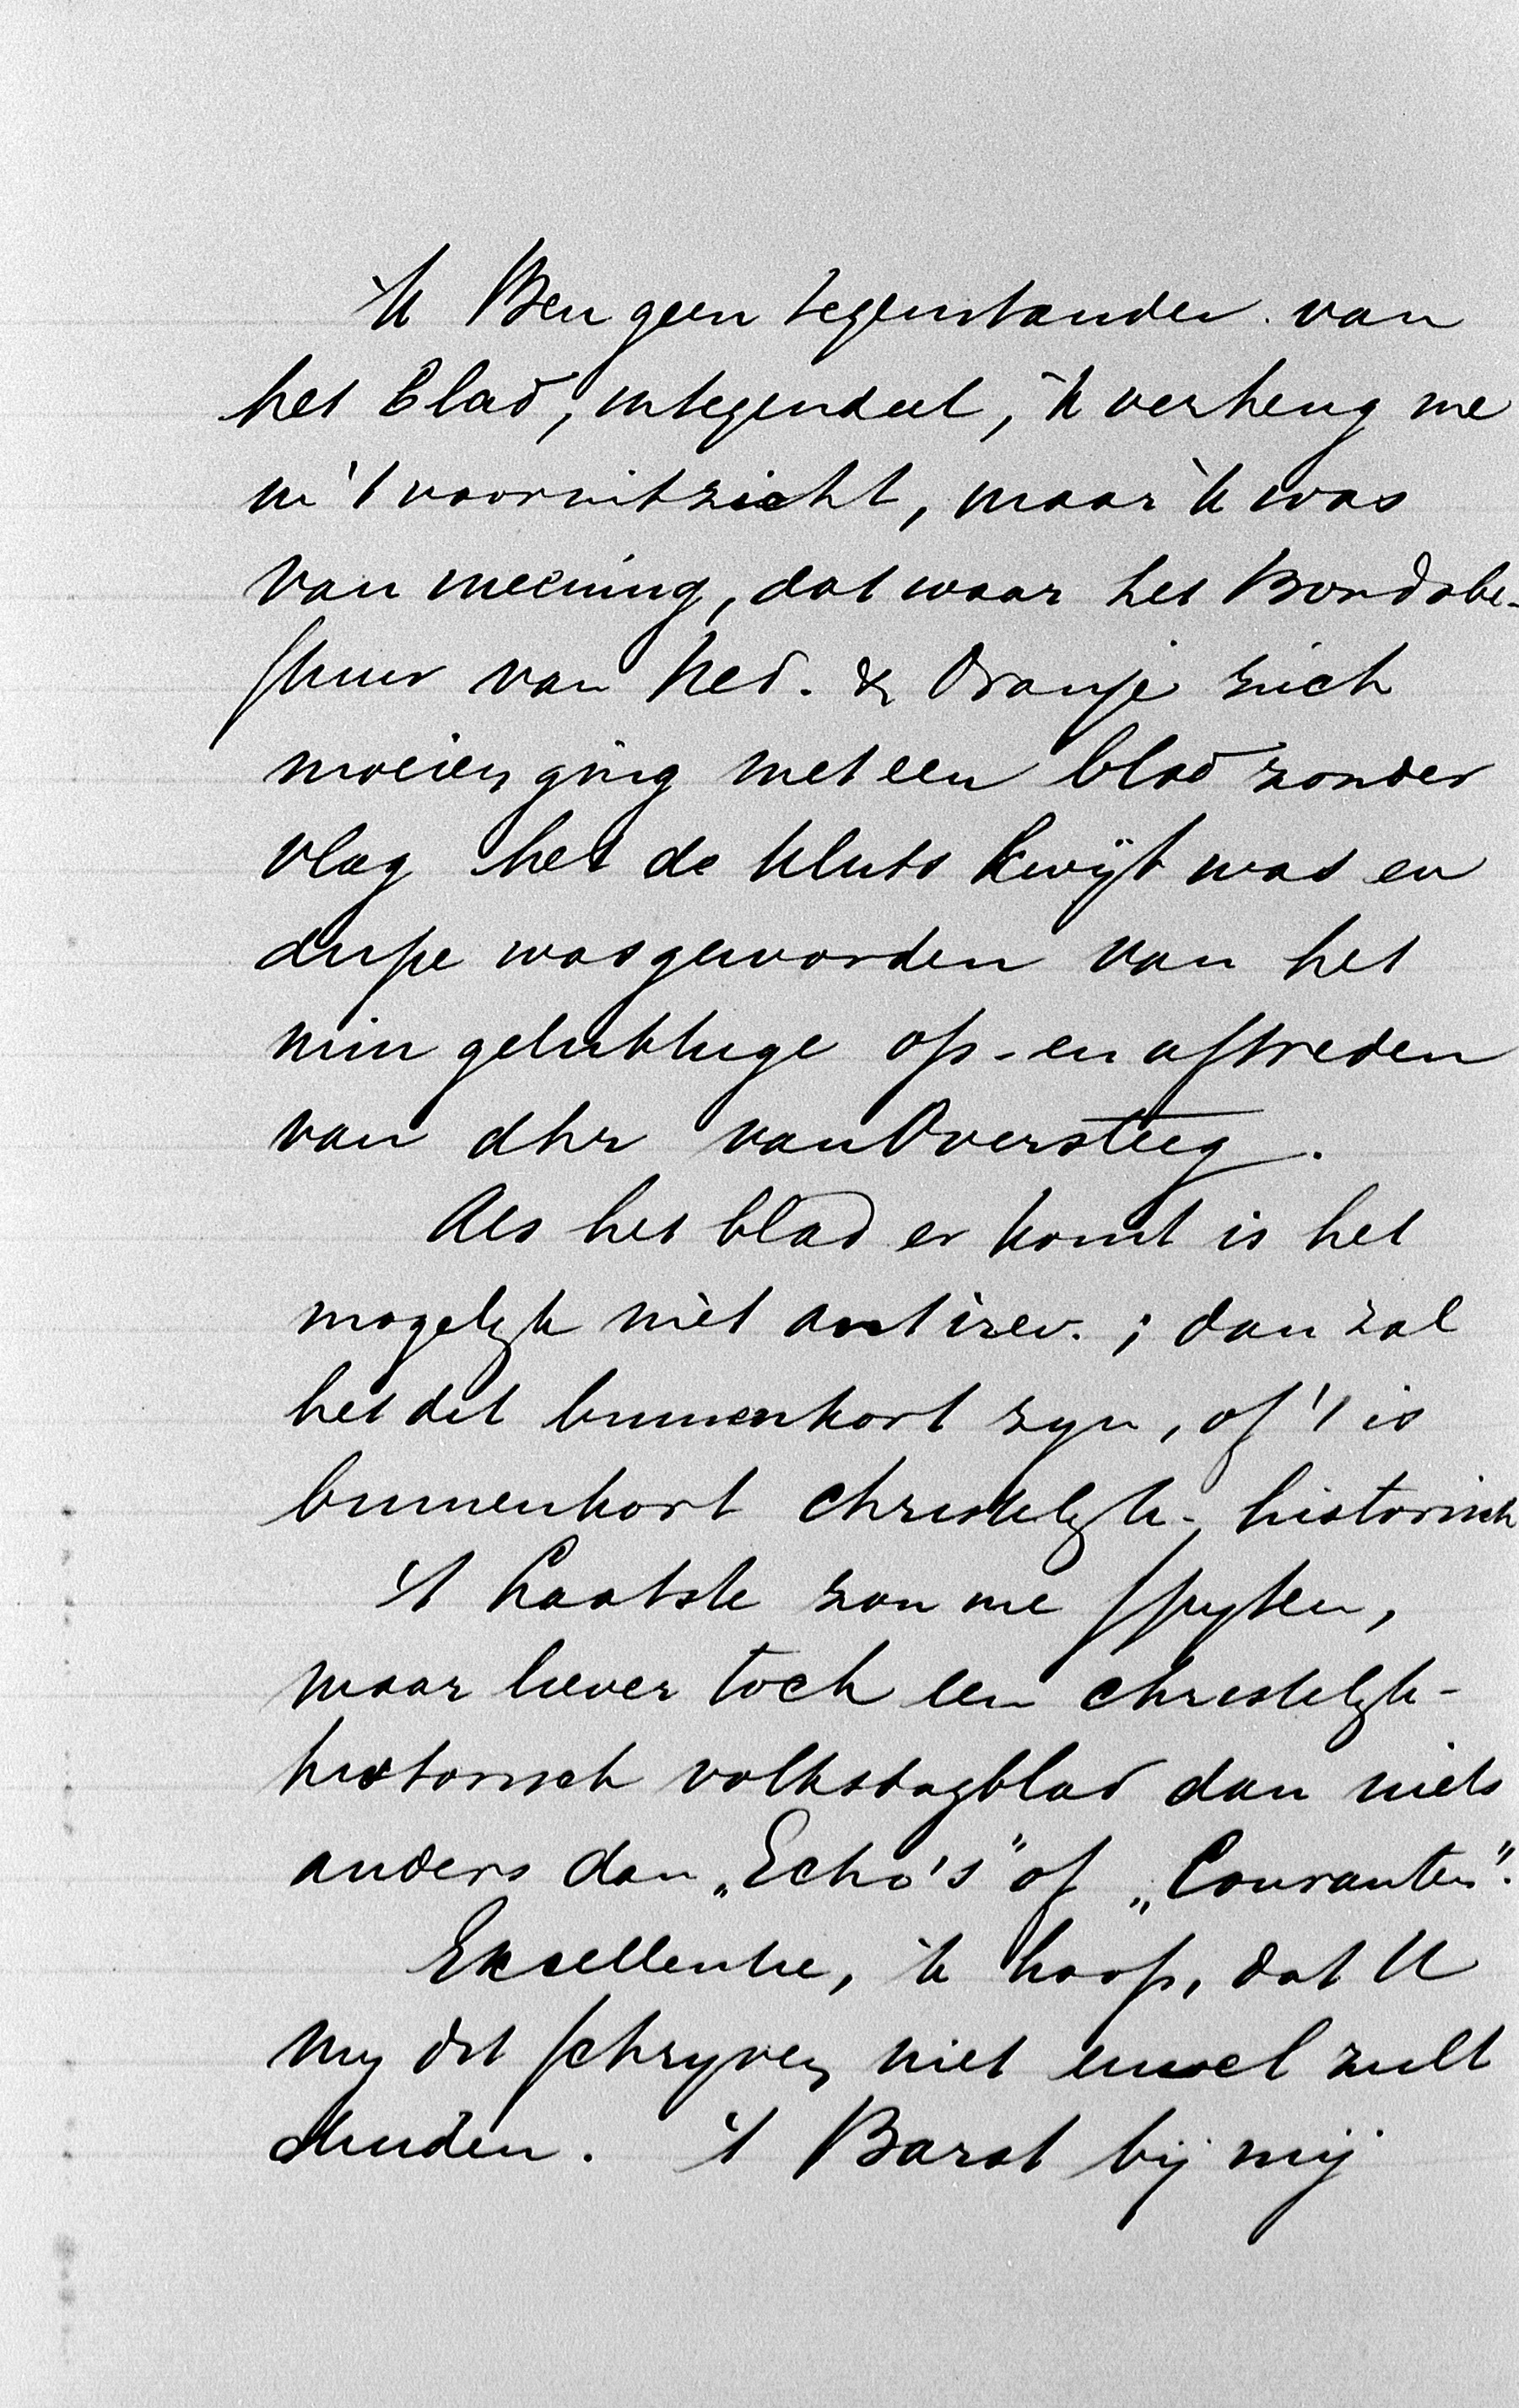 'k Ben geen tegenstander van
het blad, integendeel, 'k verheug me
in 't vooruitzicht, maar 'k was
van meening, dat waar het Bondsbe-
stuur van Ned. & Oranje zich
moeien ging met een blad zonder
vlag het de kluts kwijt was en
dupe was geworden van het
min gelukkige op- en aftreden
van dhr van Oversteeg.
Als het blad er komt is het
mogelijk niet antirev.; dan zal
het dit binnenkort zijn, of 't is
binnenkort christelijk-historisch
't Laatste zou me spijten,
maar liever toch een christelijk-
historisch volksdagblad dan niets
anders dan „Echo's" of „Couranten".
Excellentie, 'k hoop, dat U
mij dit schrijven niet euvel zult
duiden. 't Barst bij mij